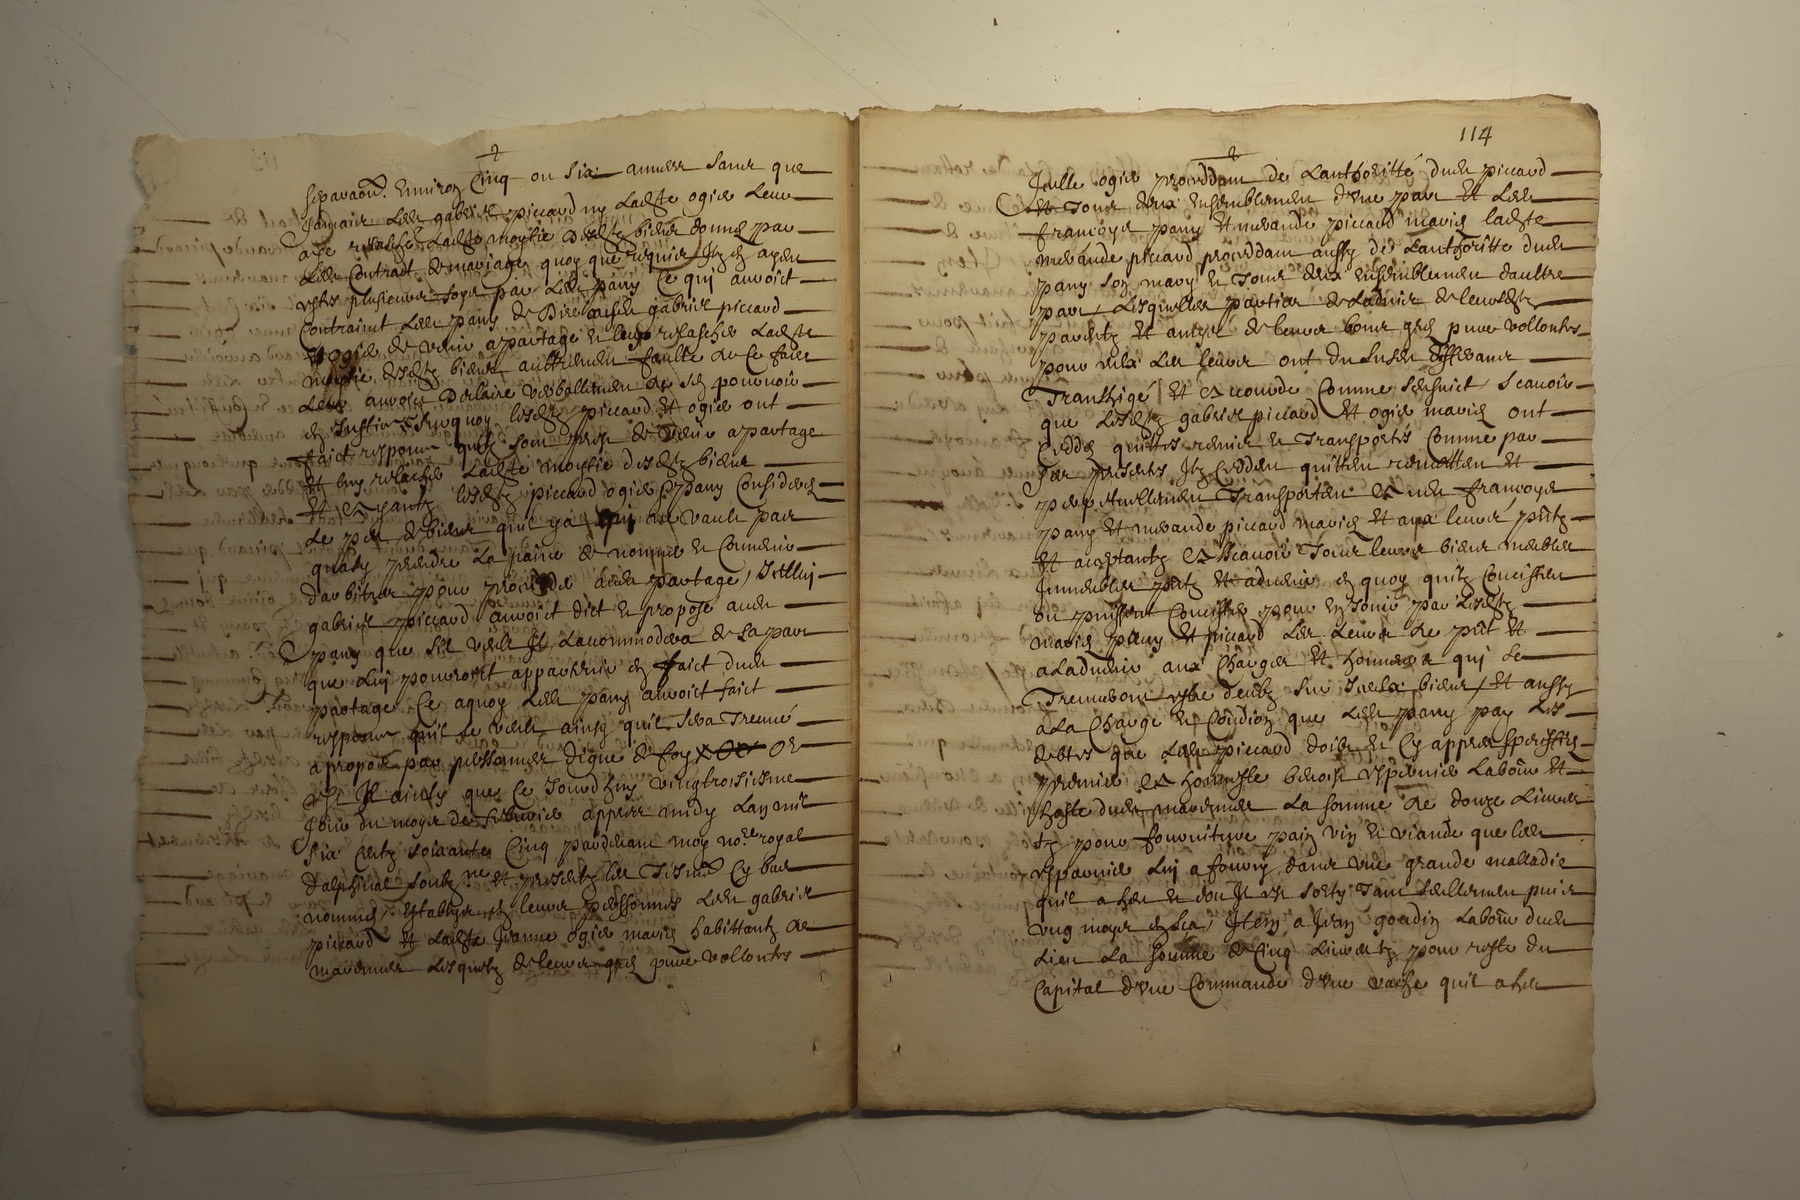 separaon. Environ Cinq ou Six années sans que
Jamais Led. gabriel piccard ny Ladte ogier Leur
aye relasché Ladte moytié desdtz biens donnés par
Led. Contract de mariage quoy que requis Ilz en ayen
estés plusieurs foys par Led. pany Ce qui auroict
Contraint Led. pany de Dire ausd. gabriel piccard
Et ogier de venir a partage et luy relascher Ladte
moytié desdtz biens autremen faulte de Ce faire
Leur auroict Desclairé verballemen de se pourvoir
en Justice Surquoy lesdtz piccard Et ogier ont
faict responce quilz sont prest de venir a partage
Et luy relacher Ladte moytié desdtz biens
Et Et ayantz lesdtz piccard ogier & pany Considéré
Le peu de biens quil y a qui ne vault pas
quasy prendre La paine de nommer et Convenir
darbitres pour proceder aud. partage / Icelluy
gabriel piccard auroict dict et proposé aud.
pany que sil veult Il Lacommodera de sa part
que Luy pourroict appartenir en faict dud.
partage Ce aquoy Led. pany auroict faict
responce quil le veult ainsy quil sera Treuvé
a propos par personnes digne de foy Or
est Il ainsy que Ce Jourdhuy vingtroisiesme
Jour du moys de febvrier appres midy Lan mil
Six Centz soixante Cinq pardevant moy nore. royal
dalphinal soubz.ne et presentz les Tesmo. Cy bas
nommés establys en leurs personnes Led. gabriel
piccard Et Ladte Jeanne ogier mariés habittantz de
Lesquelz de leurs grés pure vollontés
114
Icelle ogier proceddant de Lauthoritté dud. piccard
Et Tous deux Ensemblemen dune part Et Led.
françoys pany Et piccard mariés ladte
piccard proceddant aussy de Lauthoritte dud.
pany son mary Et Tous deux ensemblemen daultre
part / Lesquelles parties de Ladvis de leursdtz
parentz Et amys de leurs bons grés pure vollontés
pour Eulx Les leurs ont du susd. differant
Transhigé Et et acordé Comme sensuict / Scavoir
que Lesdtz gabriel piccard Et ogier mariés ont
Ceddés quittés remis et Transportés Comme par
Ces presentes Ilz Cedden quitten remetten Et
perpetuellemen Transporten et aud. françoys
pany Et piccard mariés Et aux leurs pntz
Et aceptantz Et Scavoir Tous leurs biens meubles
Immeubles pntz Et advenir en quoy quilz Concisten
ou puissent Concister pour en Jouir par Lesdtz
mariés pany Et piccard Les Leurs de pnt Et
a Ladvenir aux Charges Et honneurs qui se
Treuveront estre deubz sur Iceulx biens / Et aussy
a La Charge et Condion que Led. pany paye Les
debtes que Led. piccard doibt et Cy appres speciffiés
premier et honneste benoist Labour. Et
hoste dud. La somme de douze Livres
Et pour fourniture pain vin et viande que led.
Luy a fourny dans une grande malladie
quil a heu et dou Il est sorty Tant seullemen puis
ung moys en sça / Item a Jean goudin Labour. dud.
Lieu La somme de Cinq Livres pour reste du
Capital dune Commande dune vache quil a heu